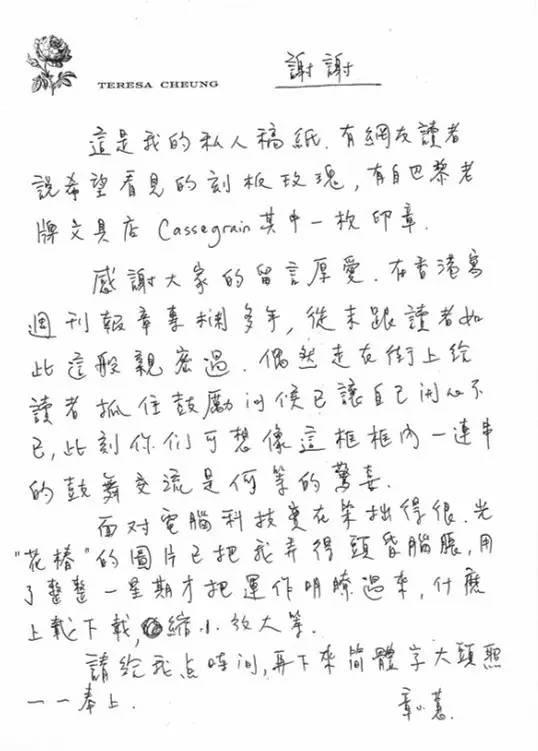 謝謝
TERESA CHEUNG
這是我的私人稿紙.有網友讀者
説希望看見的刻板玫瑰,有自巴黎老
牌文具店 Cassegrain其中一枚印章.
感謝大家的留言厚愛.在香港寫
週刊報章專欄多年,從未跟讀者如
此這般親密過.偶然走在街上给
讀者抓住鼓勵问候已讓自己開心不
已,此刻你们可想像這框框内一連串
的鼓舞交流是何等的驚喜.
面对電腦科技實在笨拙得很.光
"花椿"的圖片已把我弄得頭昏腦脹,用
了整整一星期才把運作明瞭過來,什麽
上載下載,縮小放大等.
請给我点时间,再下來简體字大頭照
一一奉上.
章小蕙.